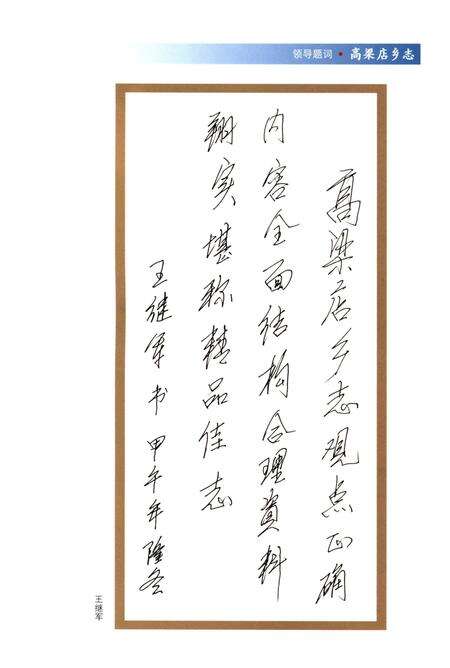 领导题词·高梁店乡志
高梁店乡志观点正确
内容全面结构合理资料
翔实堪称精品佳志
王继军书 甲午年隆冬
王继军